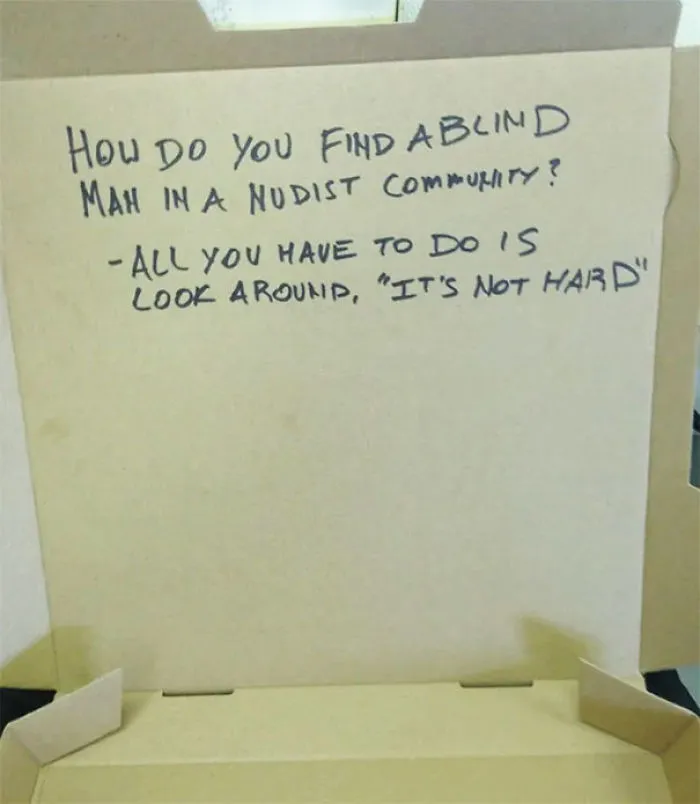 HOW DO YOU FIND A BLIND
MAN IN A NUDIST COMMUNITY?
- ALL YOU HAVE TO DO IS
LOOK AROUND, "IT'S NOT HARD"